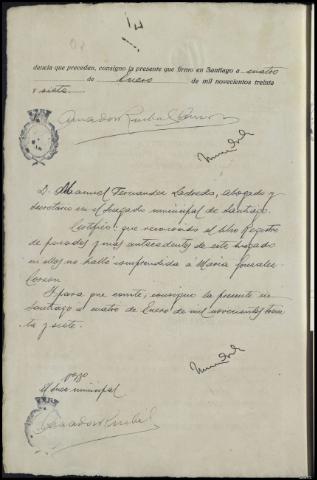 dencia que preceden, consigno la presente que firmo en Santiago a cuatro
de Enero de mil novecientos treinta
y siete
D. Manuel Fernandez Ledreda, abogado y
Secretario en el Juzgado municipal de Santiago.
Certifico: que revisando el libro Registro
de penados y mas antecedentes de este Juzgado
en ellos no hallé comprendida a Maria Gonzalez
Y para que conste, consigno la presente en
Santiago a cuatro de Enero de mil novecientos trein
ta y siete.
VºBº
El Juez municipal